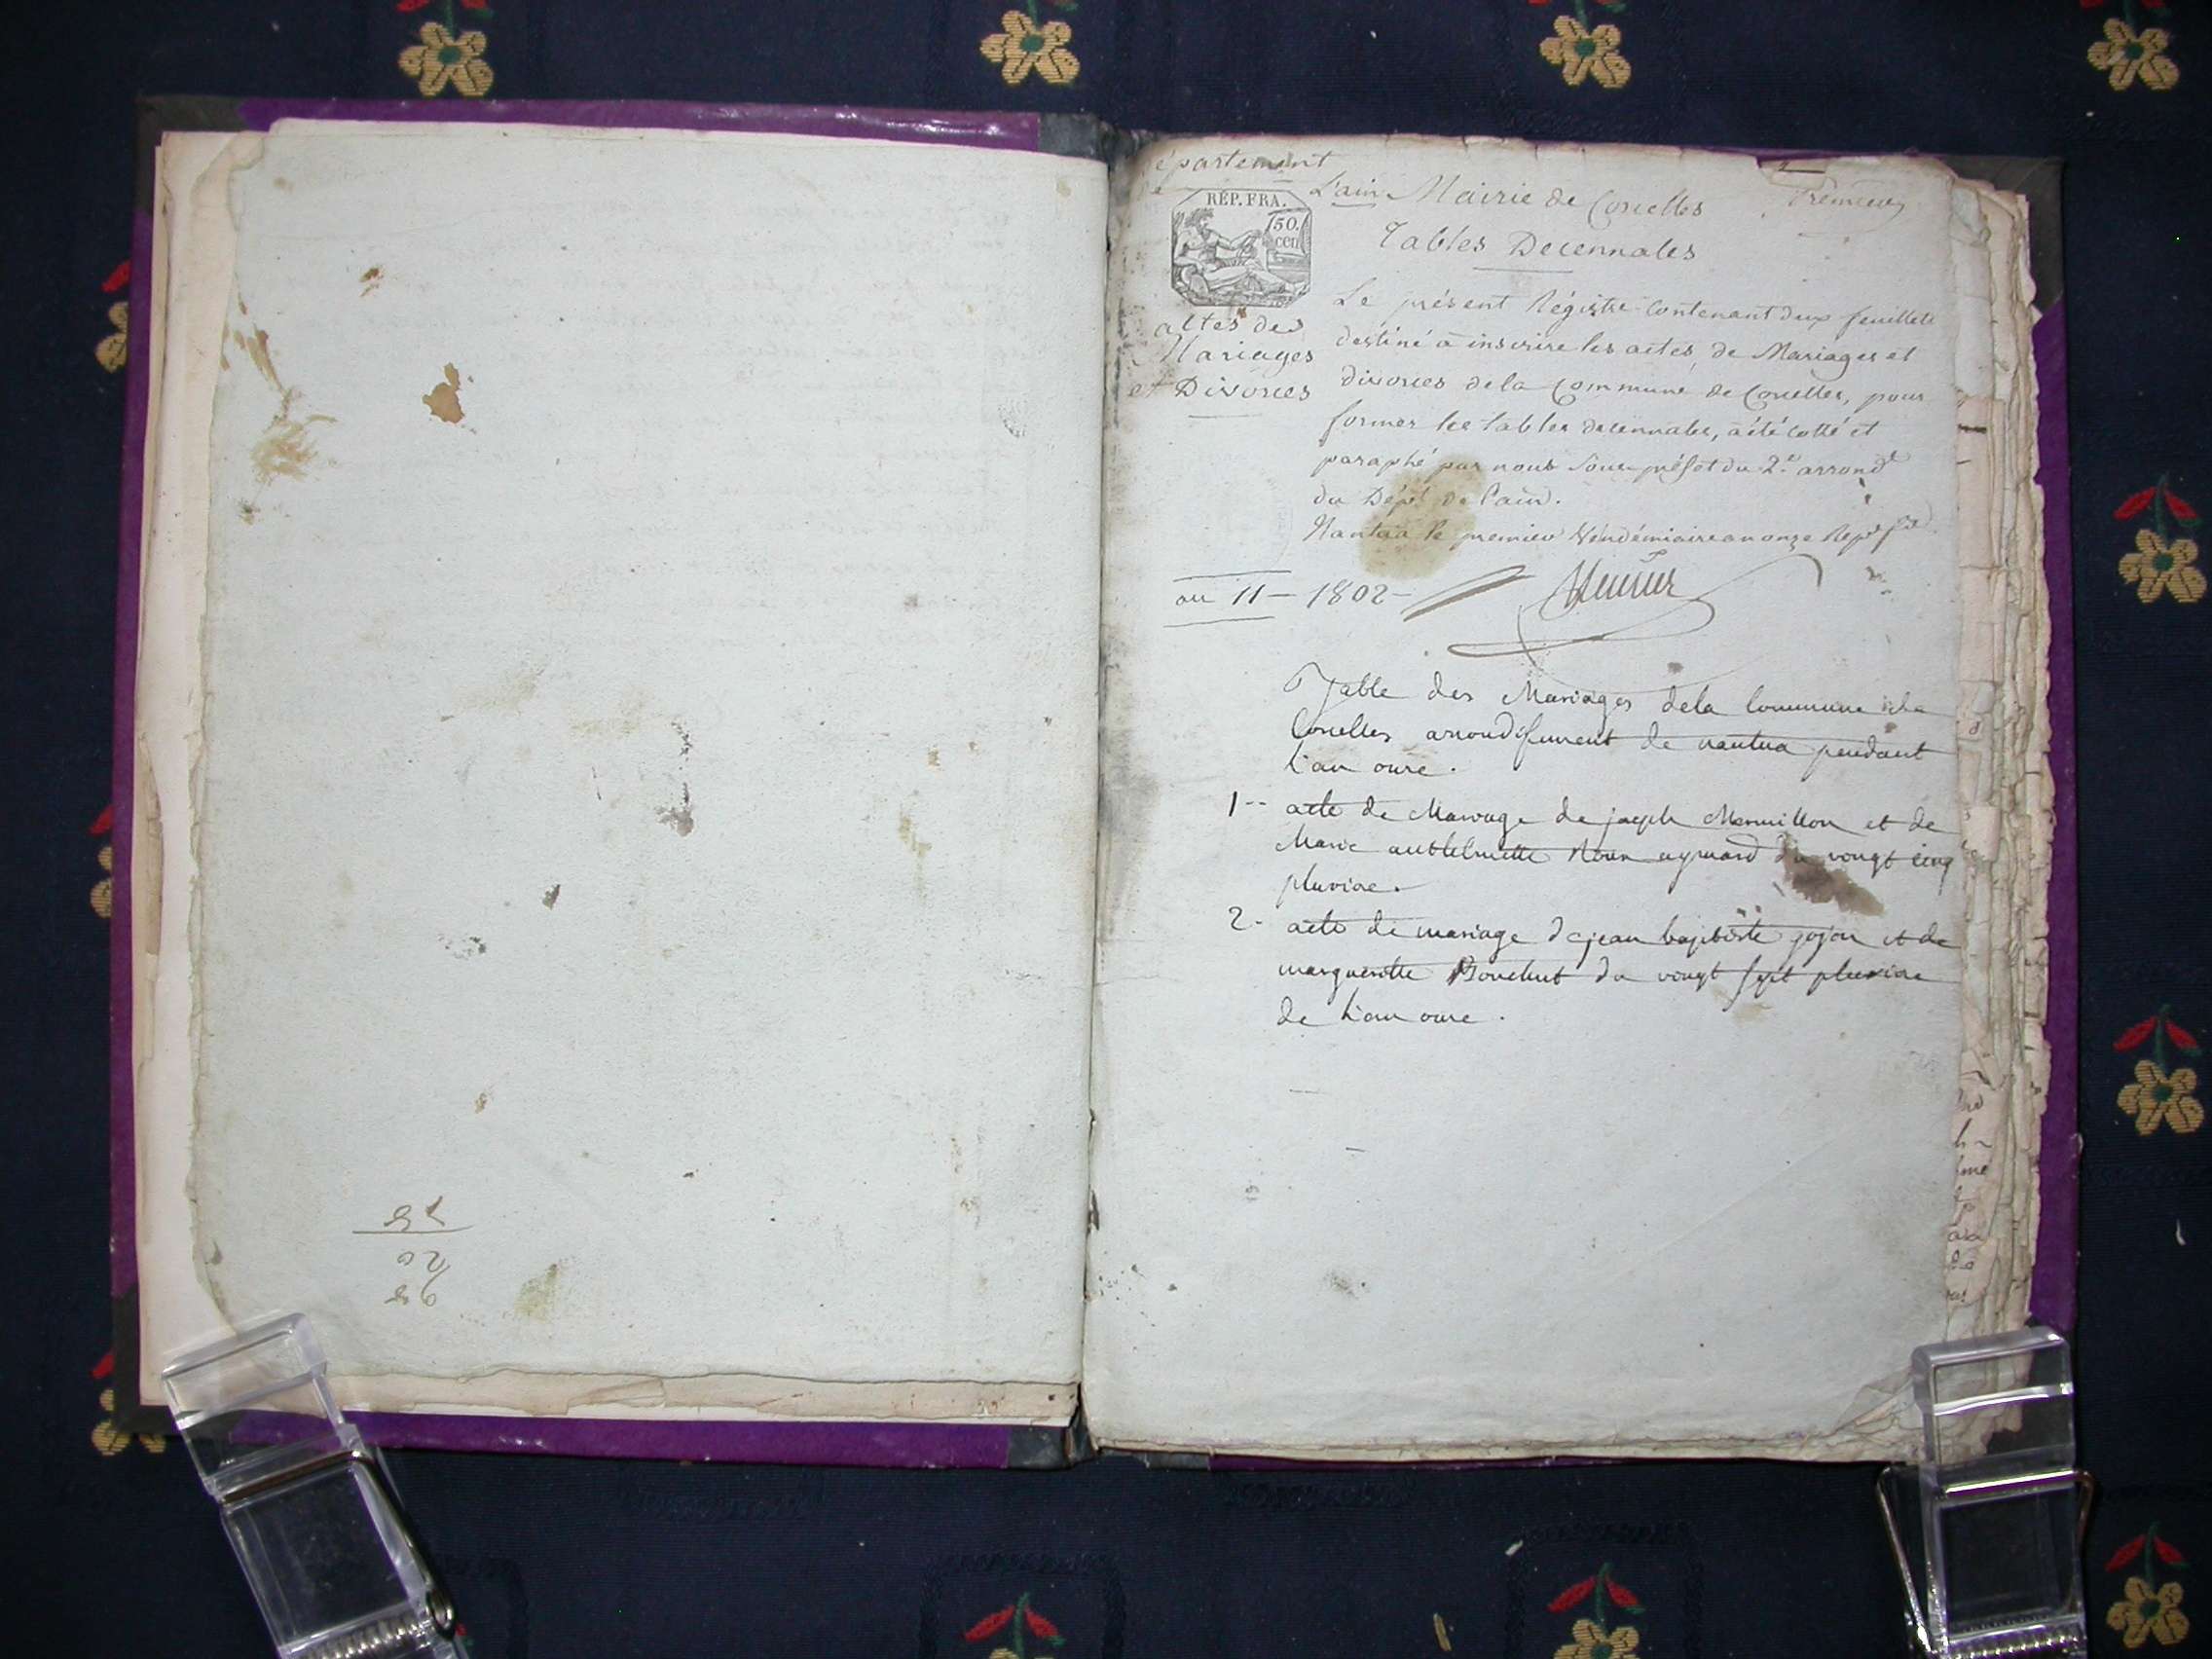 épartement
L'ain Mairie de Corcelles Premier
RÉP. FRA.
50.
cen
Tables Decennales
actes des
Mariages
et Divorces
Le présent Régistre contenant deux feuillets
destiné à inscrire les actes, de Mariages et
divorces de la Commune de Corcelles, pour
former les tables decennales, a été cotté et
paraphé par nous Sous-préfet du 2e arrondt
du Dépt de l'ain.
Nantua le premier Vendémiaire an onze
an 11 — 1802 —
Table des Mariages dela Commune de
Corcelles arrondissement de nantua pendant
l'an onze.
1-- acte de Mariage de joseph Mermillon et de
Marie du vingt cinq
pluviose.
2- acte de mariage de jean baptiste gojon et de
margueritte Bouchut du vingt sept pluviose
de l'an onze.
20